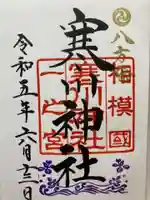 八方
相模國
寒川神社
寒川神社
一之宮
令和五年六月
日